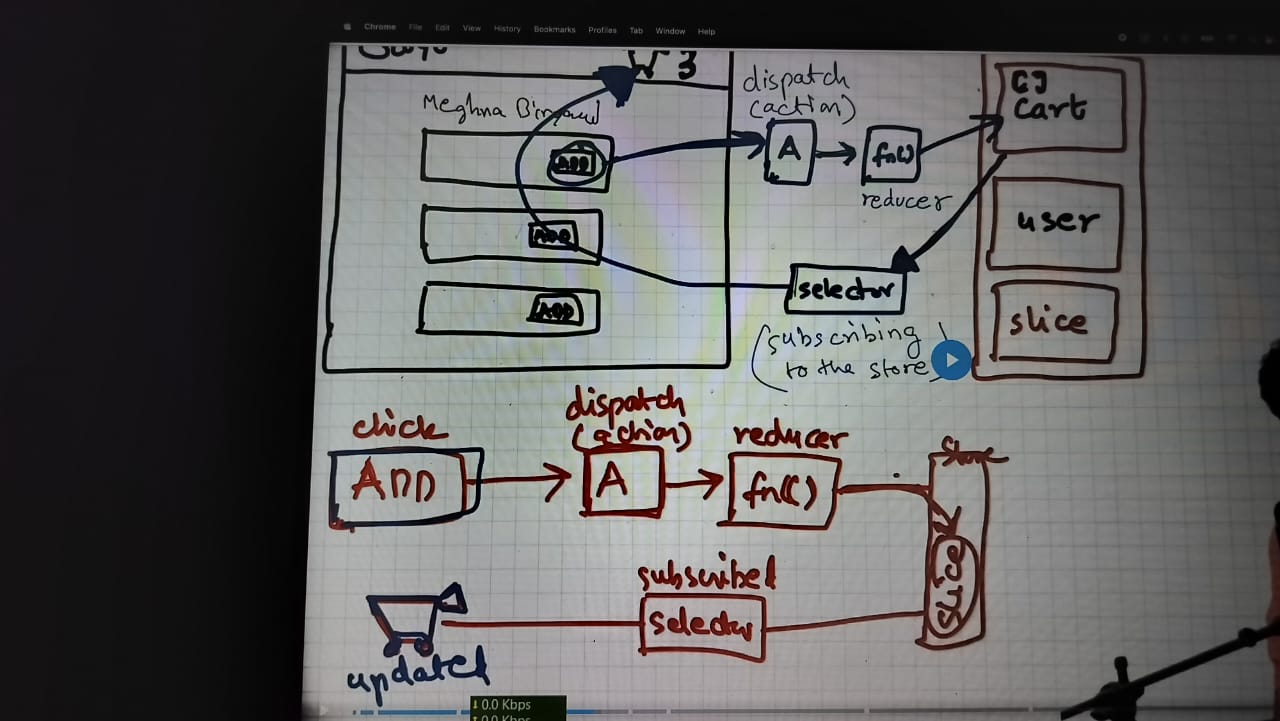 Chrome File Edit View History Bookmarks Profiles Tab Window Help
3
dispatch
(action)
Meghna Biryani
ADD
A
fn()
reducer
cart
user
slice
ADD
selector
ADD
(subscribing
to the store)
click
ADD
dispatch
(action)
A
reducer
fn()
Store
slice
subscribed
selector
updated
0.0 Kbps
0.0 Kbps